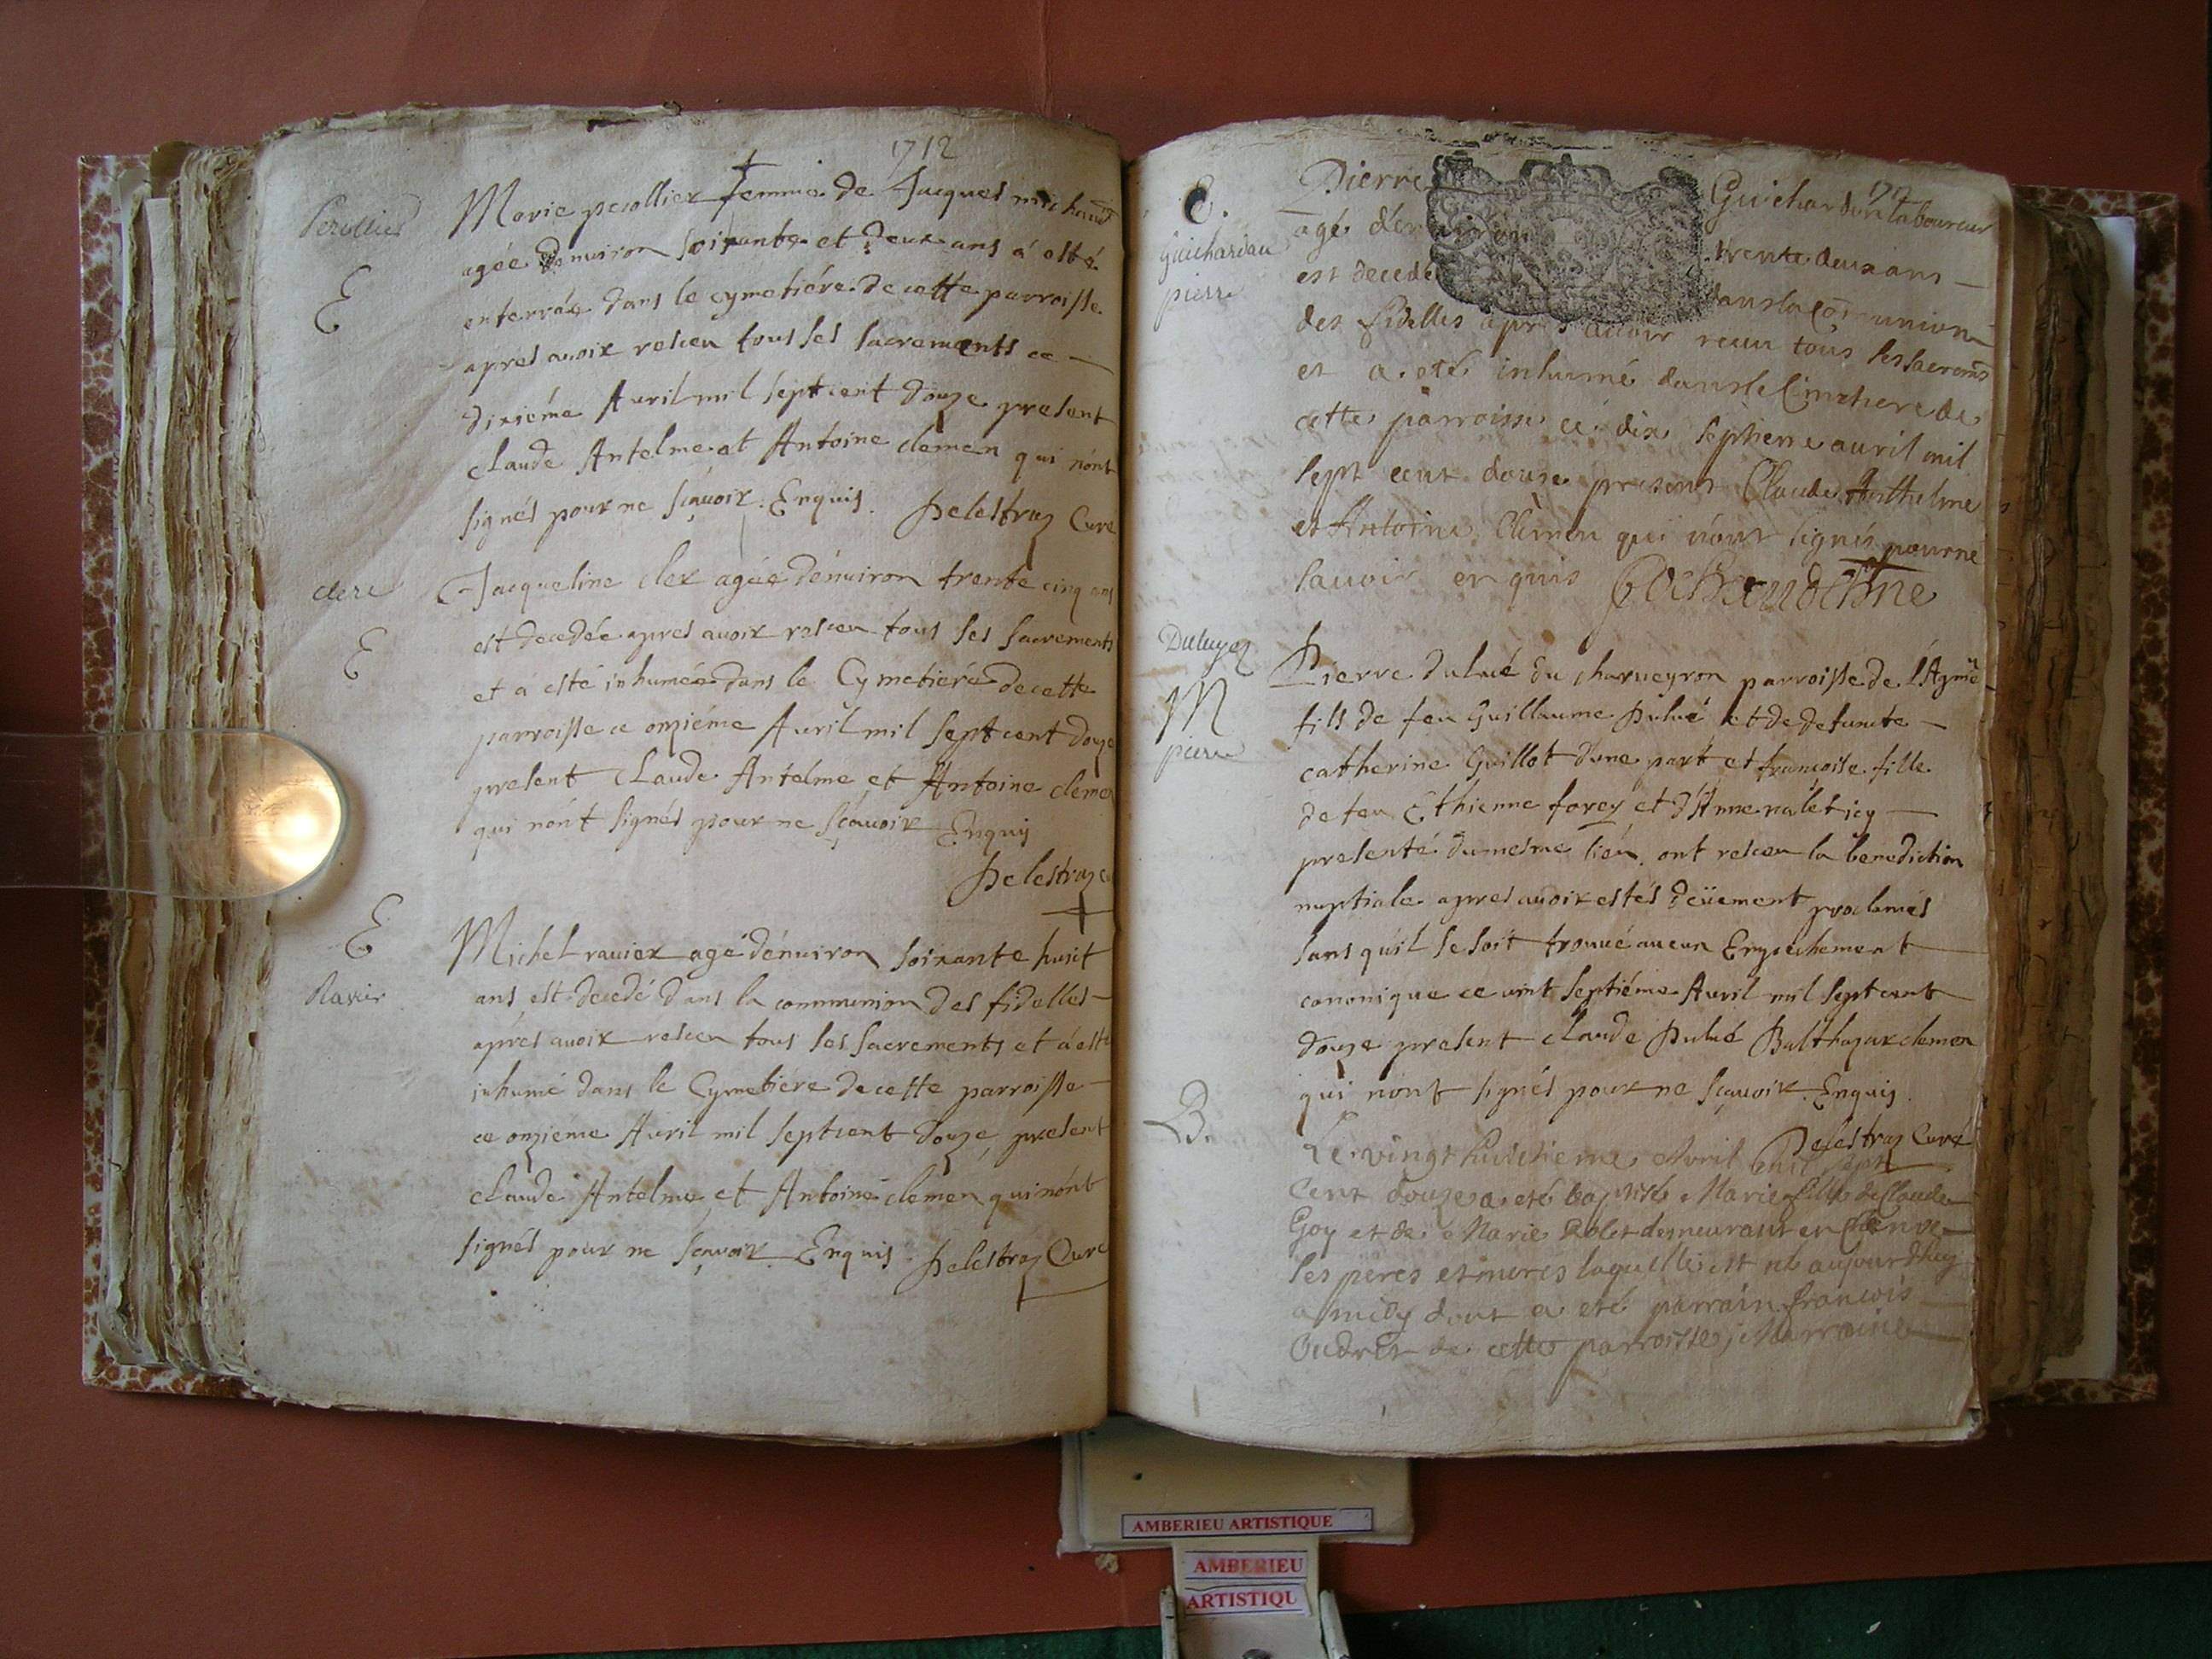 1712
Perollier
Marie perollier femme de Jacques michaud
agée denuiron soixante et deux ans á esté
E
enterráe dans le cymetiére de cette parroisse
apres auoir resceu tous ses sacrements ce
dixiéme Auril mil sept cent douze present
claude Antelme et Antoine clemen qui nónt
signés pour ne sçauoir. Enquis. Delestraz Curé
clerc
Jacqueline cler agée dénuiron trente cinq ans
E
est decedée apres auoir resceu tous ses sacrements
et á esté inhumée dans le Cymetiére de cette
parroisse ce onziéme Auril mil sept cent douze
present Claude Antelme et Antoine clemen
qui nónt signés pour ne sçauoir Enquis
Delestraz
E
Michel rauier agé dénuiron soixante huit
Ravier
ans est decedé dans la communion des fidelles
apres auoir resceu tous ses sacrements et á esté
inhumé dans le Cymetiere de cette parroisse
ce onzieme Auril mil sept cent douze present
claude Antelme et Antoine clemen qui nónt
signés pour ne sçauoir. Enquis. Delestraz Curé
1712
E.
Guichardon
pierre
Pierre Guichardon laboureur
agé d'enuiron trente deux ans
est decedé dans la communion
des fidelles apres auoir receu tous ses sacrems
et a eté inhumé dans le Cimetiere de
cette parroisse ce dix septieme auril mil
sept cent douze presens Claude Anthelme
et Antoine Clemen qui n'ont signés pour ne
sauoir enquis
Duluyez
M
pierre
Pierre Dulué du charueyron parroisse de l'Agnié
fils de feu Guillaume Dulué et de defuncte
catherine Guillot dúne part et francoise fille
de feu Ethienne forey et d'Anne
presente du mesme lieu. ont resceu la benediction
nuptiale apres auoir estés deüement proclamés
sans qu'il se soit trouué aucun Empechement
canonique ce vint septiéme Auril mil sept cent
douze present claude Dulué Balthazar clemen
qui nónt signés pour ne sçauoir. Enquis.
Delestraz Curé
B.
Le vingt huictieme Avril mil sept
cent douze a eté baptisée Marie fille de Claude
Goy et de Marie Robet demeurant en
ses peres et meres laquelle est né aujourdhuy
a midy dont a eté parrain francois
de cette parroisse, Marraine
AMBERIEU ARTISTIQUE
AMBERIEU
ARTISTIQU